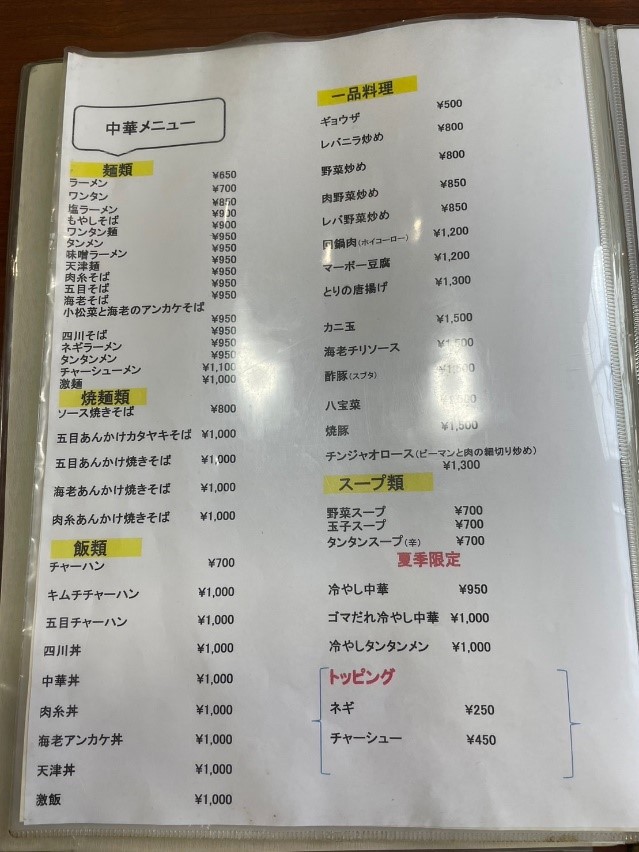 中華メニュー
麺類
ラーメン ¥650
ワンタン ¥700
塩ラーメン ¥850
もやしそば ¥900
ワンタン麺 ¥900
タンメン ¥950
味噌ラーメン ¥950
天津麺 ¥950
肉糸そば ¥950
五目そば ¥950
海老そば ¥950
小松菜と海老のアンカケそば
¥950
四川そば ¥950
ネギラーメン ¥950
タンタンメン ¥950
チャーシューメン ¥1,100
激麺 ¥1,000
焼麺類
ソース焼きそば ¥800
五目あんかけカタヤキそば ¥1,000
五目あんかけ焼きそば ¥1,000
海老あんかけ焼きそば ¥1,000
肉糸あんかけ焼きそば ¥1,000
飯類
チャーハン ¥700
キムチチャーハン ¥1,000
五目チャーハン ¥1,000
四川丼 ¥1,000
中華丼 ¥1,000
肉糸丼 ¥1,000
海老アンカケ丼 ¥1,000
天津丼 ¥1,000
激飯 ¥1,000
一品料理
ギョウザ ¥500
レバニラ炒め ¥800
野菜炒め ¥800
肉野菜炒め ¥850
レバ野菜炒め ¥850
回鍋肉(ホイコーロー) ¥1,200
マーボー豆腐 ¥1,200
とりの唐揚げ ¥1,300
カニ玉 ¥1,500
海老チリソース
酢豚(スブタ)
八宝菜
焼豚 ¥1,500
チンジャオロース(ピーマンと肉の細切り炒め)
¥1,300
スープ類
野菜スープ ¥700
玉子スープ ¥700
タンタンスープ(辛) ¥700
夏季限定
冷やし中華 ¥950
ゴマだれ冷やし中華 ¥1,000
冷やしタンタンメン ¥1,000
トッピング
ネギ ¥250
チャーシュー ¥450